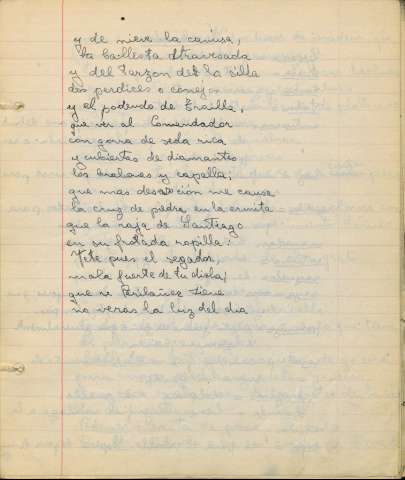 y de nieve la camisa,
la ballesta atravesada
y del arzon de la silla
dos perdices o conejos
y el podenco de trailla,
que ver al Comendador
con gorra de seda rica
y cubiertas de diamantes
los brahones y capilla;
que mas devoción me causa
la cruz de piedra en la ermita
que la roja de Santiago
en su ropilla.
Vete pues el segador,
mala fuese de tu dicha;
que si Peribañez viene
no veras la luz del dia